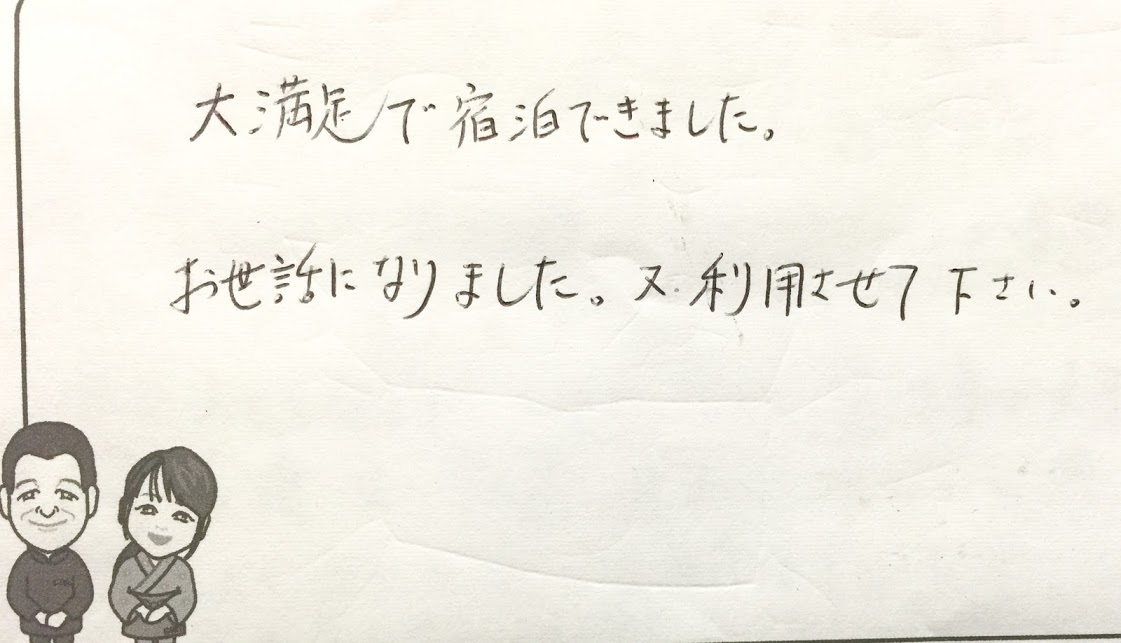 大満足で宿泊できました。
お世話になりました。又、利用させて下さい。